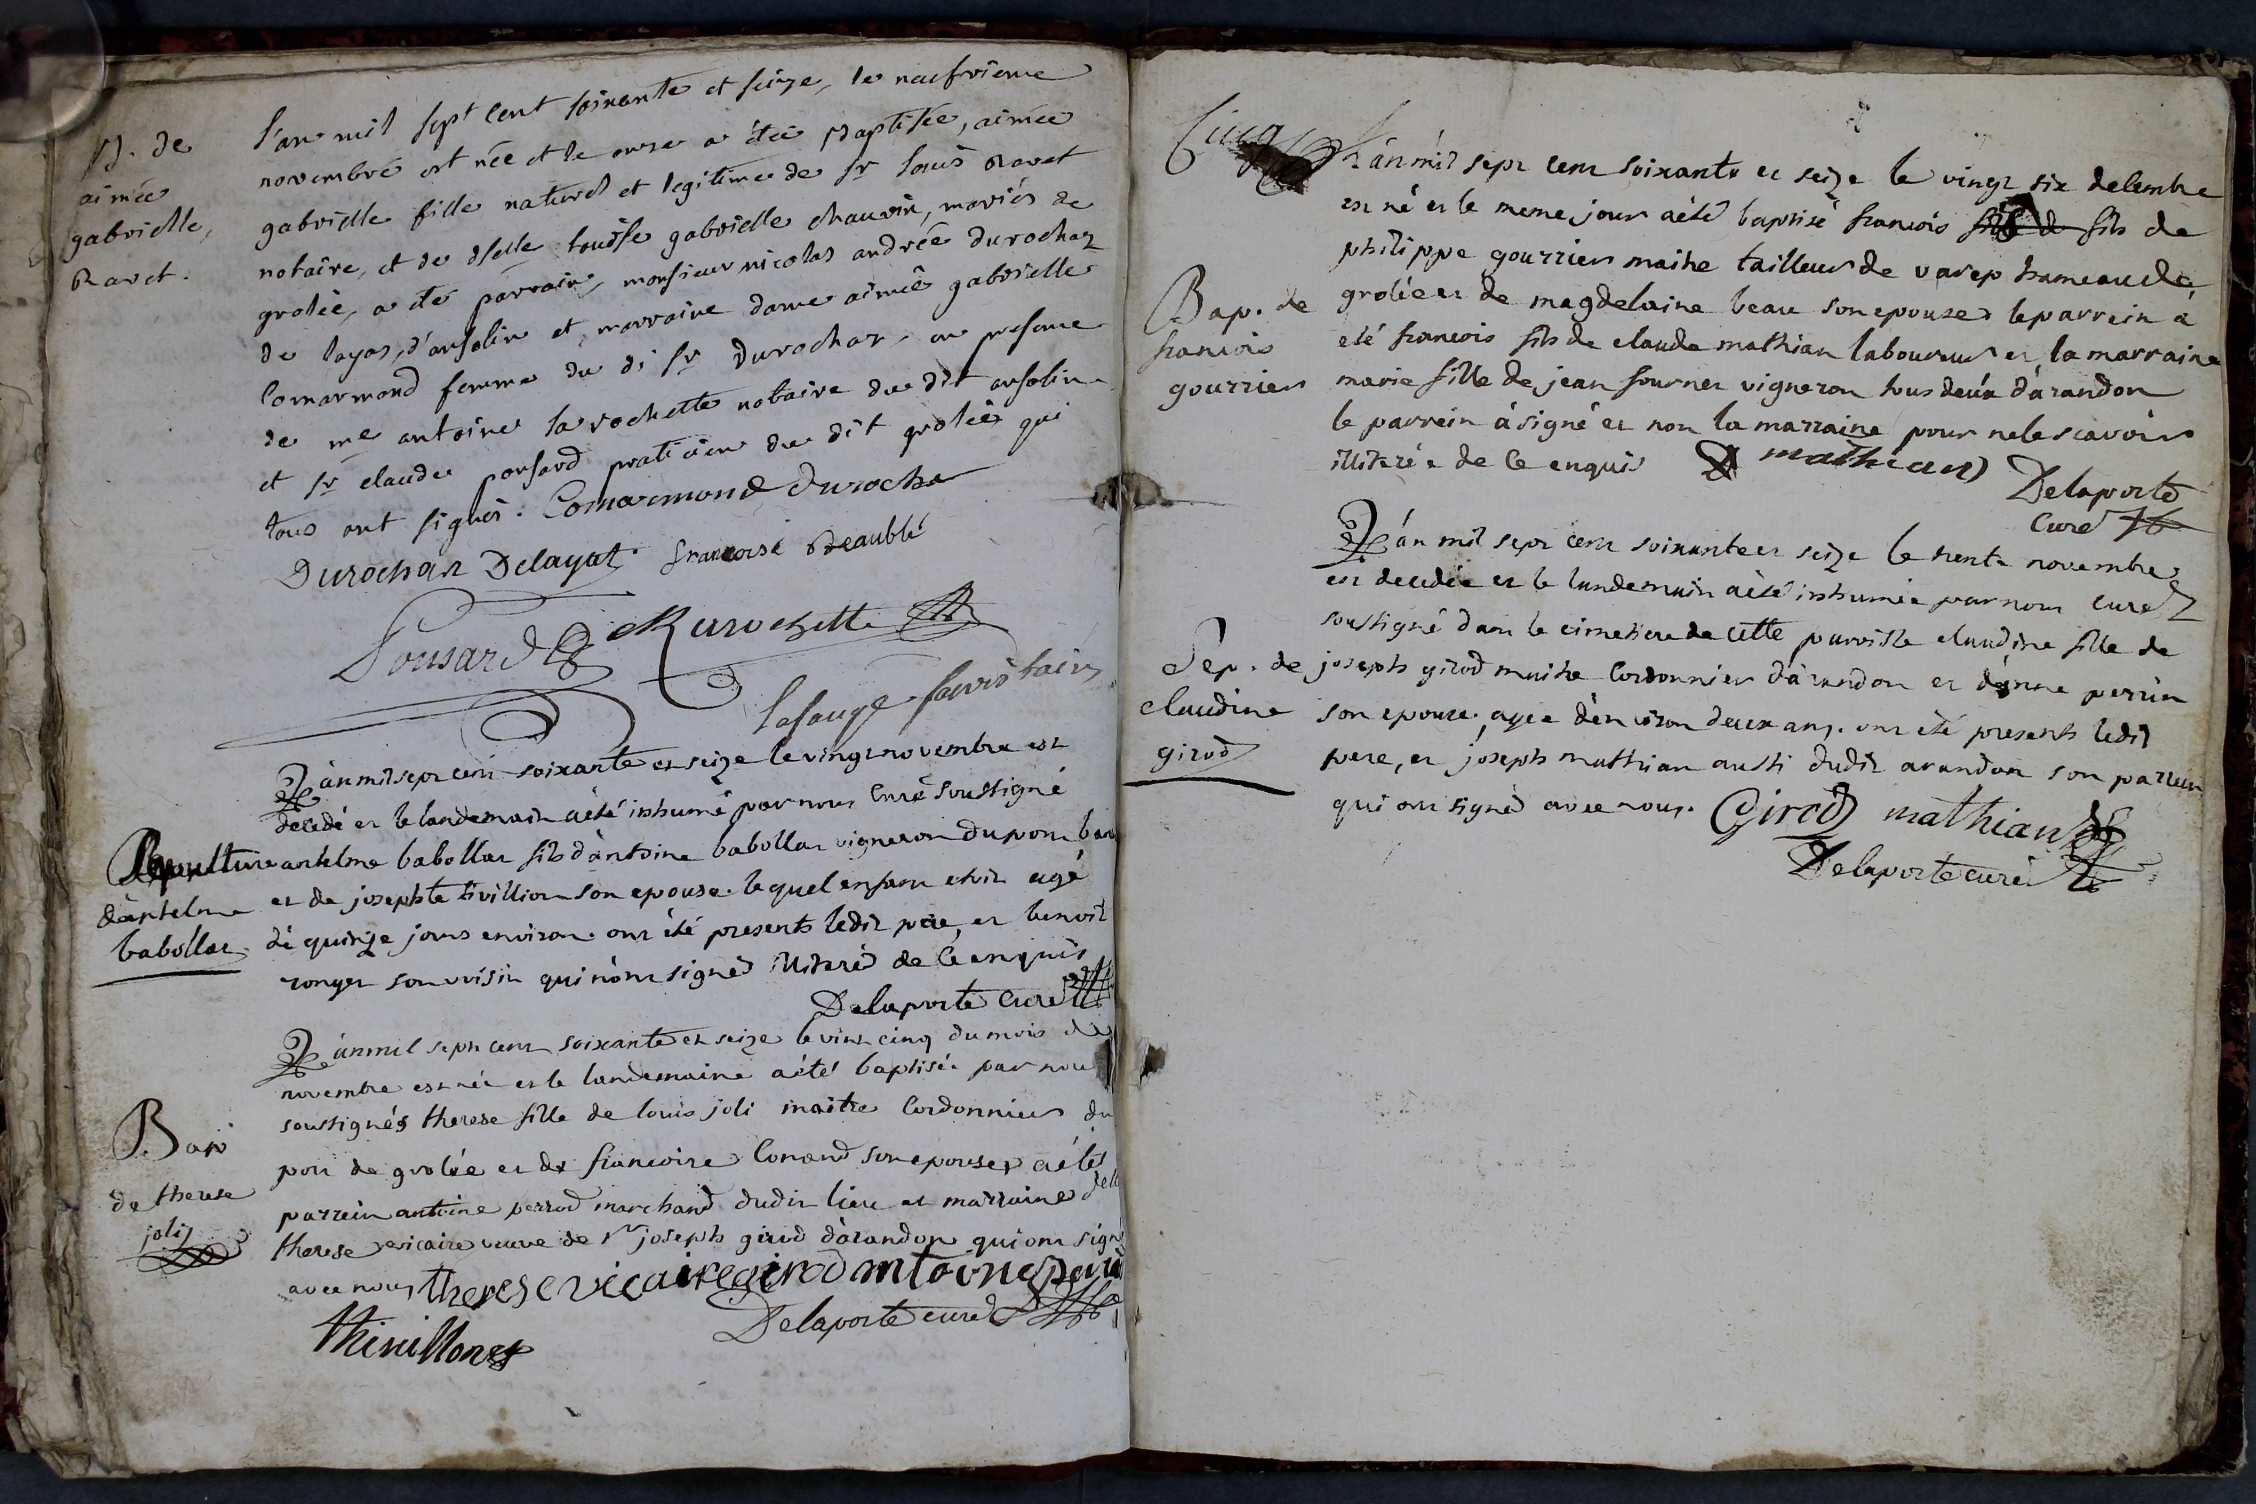 B. de
aimée
gabrielle,
Ravet.
L'an mil sept cent soixante et seize, le neufvieme
novembre est née et le onze a étée Baptisée, aimée
gabrielle fille naturel et legitime de Sr Louis Ravet
notaire, et de dselle Louise gabrielle chauvin, mariés de
grolée, a été parrain, monsieur nicolas andrée durochaz
de layas, d'anfolin et marraine dame aimée gabrielle
Comarmond femme du di Sr durochaz, en presence
de me antoine larochette notaire du dit anfolin
et Sr claude ponsard praticien du dit grolée qui
tous ont signés. Comarmond durocha
Durochaz Delayat francoise Beaublé
Ponsard Larochette
Sepulture
d'antelme
babollat
L'an mil sept cent soixante et seize le vingt novembre est
decedé et le landemain a été inhumé par nous Curé soussigné
antelme babollat fils d'antoine babollat vigneron du pont
et de josephte son epouse. lequel enfant etoit agé
de quinze jours environ. ont été presents ledit pere, et benoit
ronger son voisin qui n'ont signé illiteré de ce enquis
Delaporte Curé
Bap
de therese
joli
L'an mil sept cent soixante et seize le vint cinq du mois de
novembre est née et le landemaine a été baptisée par nous
soussignés therese fille de louis joli maitre Cordonnier du
port de grolée et de francoise Conand son epouse, a été
parrein antoine perrod marchand dudit lieu et marraine delle
therese vicaire veuve de Sr joseph girod d'arandon qui ont signé
avec nous therese vicaire girod antoine
Delaporte curé
thevillonet
L'an mil sept cent soixante et seize le vingt six decembre
est né et le meme jour a été baptisé francois fils de fils de
philippe gourrier maitre tailleur de varep hameau de
grolée et de magdelaine beau son epouse, le parrein a
eté francois fils de claude mathian laboureur et la marraine
marie fille de jean fournet vigneron tous deux d'arandon
le parrein a signé et non la marraine pour ne le scavoir
illiterée de ce enquis mathian
Delaporte
Curé
Bap. de
francois
gourrier
L'an mil sept cent soixante et seize le trente novembre
est decedée et le landemain a été inhumée par nous Curé
soussigné dans le cimetiere de cette parroisse claudine fille de
joseph girod maitre Cordonnier d'arandon et d'anne perrin
son epouse, agée d'environ deux ans. ont été presents ledit
pere, et joseph mathian aussi dudit arandon son parrein
qui ont signé avec nous. Girod mathian
Delaporte curé
Sep. de
claudine
girod